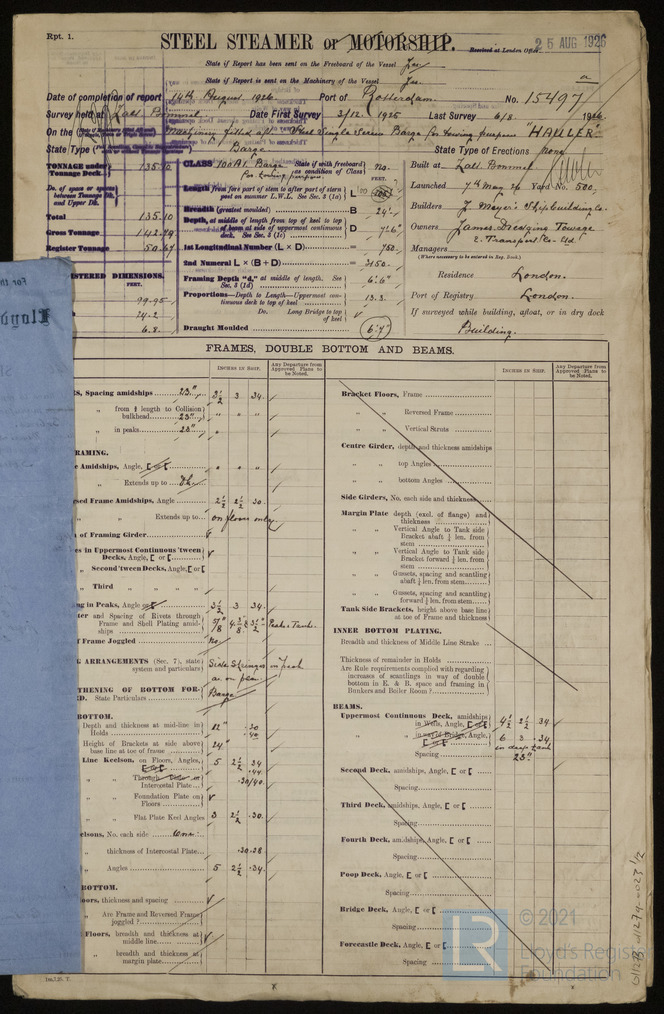 Rpt. 1.
STEEL STEAMER or MOTORSHIP.
Received at London Office
25 AUG 1926
State if Report has been sent on the Freeboard of the Vessel Yes
State if Report is sent on the Machinery of the Vessel Yes
Date of completion of report 14th August 1926 Port of Rotterdam No. 15497
Survey held at Zalt Bommel Date First Survey 3/12 1925 Last Survey 6/8 1926
On the Steel Single Screw Barge for towing purposes "HAULER"
State Type Barge State Type of Erections None
TONNAGE under Tonnage Deck 135.10
Do. of space or spaces between Tonnage Dk. and Upper Dk.
Total 135.10
Gross Tonnage 142.79
Register Tonnage 50.67
REGISTERED DIMENSIONS.
FEET.
99.95
24.2
6.8
CLASS 100A1 Barge For towing purposes State if with freeboard as condition of Class No.
FEET.
Length from fore part of stem to after part of stern post on summer L.W.L. See Sec. 3 (1a) L 100
Breadth (greatest moulded) B 24'
Depth, at middle of length from top of keel to top of beam at side of uppermost continuous deck. See Sec. 3 (1c) D 7'6"
1st Longitudinal Number (L × D) = 750
2nd Numeral L × (B + D) = 3150
Framing Depth "d," at middle of length. See Sec. 3 (1d) = 6'6"
Proportions—Depth to Length—Uppermost continuous deck to top of keel 13.3
Do. Long Bridge to top of keel
Draught Moulded 6'7"
Built at Zalt Bommel
Launched 7th May 26 Yard No. 500
Builders J. Meyer's Shipbuilding Co.
Owners James Dredging Towage & Transport Co. Ltd.
Managers
(Where necessary to be entered in Reg. Book.)
Residence London.
Port of Registry London.
If surveyed while building, afloat, or in dry dock
Building.
FRAMES, DOUBLE BOTTOM AND BEAMS.
INCHES IN SHIP.
Any Departure from Approved Plans to be Noted.
INCHES IN SHIP.
Any Departure from Approved Plans to be Noted.
Spacing amidships 23" 3½ 3 .34
" from ⅕ length to Collision bulkhead 23" " " "
" in peaks 23" "
FRAMING.
Amidships, Angle, " " "
" Extends up to
Frame Amidships, Angle 2½ 2½ .30
" " Extends up to on floors only
of Framing Girder
in Uppermost Continuous 'tween Decks, Angle,
" Second 'tween Decks, Angle,
" Third " "
in Peaks, Angle 3½ 3 .34
and Spacing of Rivets through Frame and Shell Plating amidships 5/8 Peaks & Tanks
Frame Joggled No
ARRANGEMENTS (Sec. 7), state system and particulars Side Stringer in peak as on plan
State Particulars Barge
BOTTOM.
Depth and thickness at mid-line in Holds 12" .30 .40
Height of Brackets at side above base line at toe of frame 24"
Line Keelson, on Floors, Angles, 5 2½ .34 .44
" " Through Intercostal Plate .30/40
" " Foundation Plate on Floors
" " Flat Plate Keel Angles 3 2½ .30
No. each side One
" thickness of Intercostal Plate .30.38
" Angles 5 2½ .34
BOTTOM.
thickness and spacing
" Are Frame and Reversed Frame joggled ?
Floors, breadth and thickness at middle line
" breadth and thickness at margin plate
Bracket Floors, Frame
" " Reversed Frame
" " Vertical Struts
Centre Girder, depth and thickness amidships
" " top Angles
" " bottom Angles
Side Girders, No. each side and thickness
Margin Plate depth (excl. of flange) and thickness
" " Vertical Angle to Tank side Bracket abaft ¼ len. from stem
" " Vertical Angle to Tank side Bracket forward ¼ len. from stem
" " Gussets, spacing and scantling abaft ¼ len. from stem
" " Gussets, spacing and scantling forward ¼ len. from stem
Tank Side Brackets, height above base line at toe of Frame and thickness
INNER BOTTOM PLATING.
Breadth and thickness of Middle Line Strake
Thickness of remainder in Holds
Are Rule requirements complied with regarding increases of scantlings in way of double bottom in E. & B. space and framing in Bunkers and Boiler Room ?
BEAMS.
Uppermost Continuous Deck, amidships in Wells, Angle, 4½ 2½ .34
" " in way of Bridge, Angle, 6 3 .34 in deep tank
Spacing 23"
Second Deck, amidships, Angle,
Spacing
Third Deck, amidships, Angle,
Spacing
Fourth Deck, amidships, Angle,
Spacing
Poop Deck, Angle,
Spacing
Bridge Deck, Angle,
Spacing
Forecastle Deck, Angle,
Spacing
© 2021
LR
Lloyd's Register
Foundation